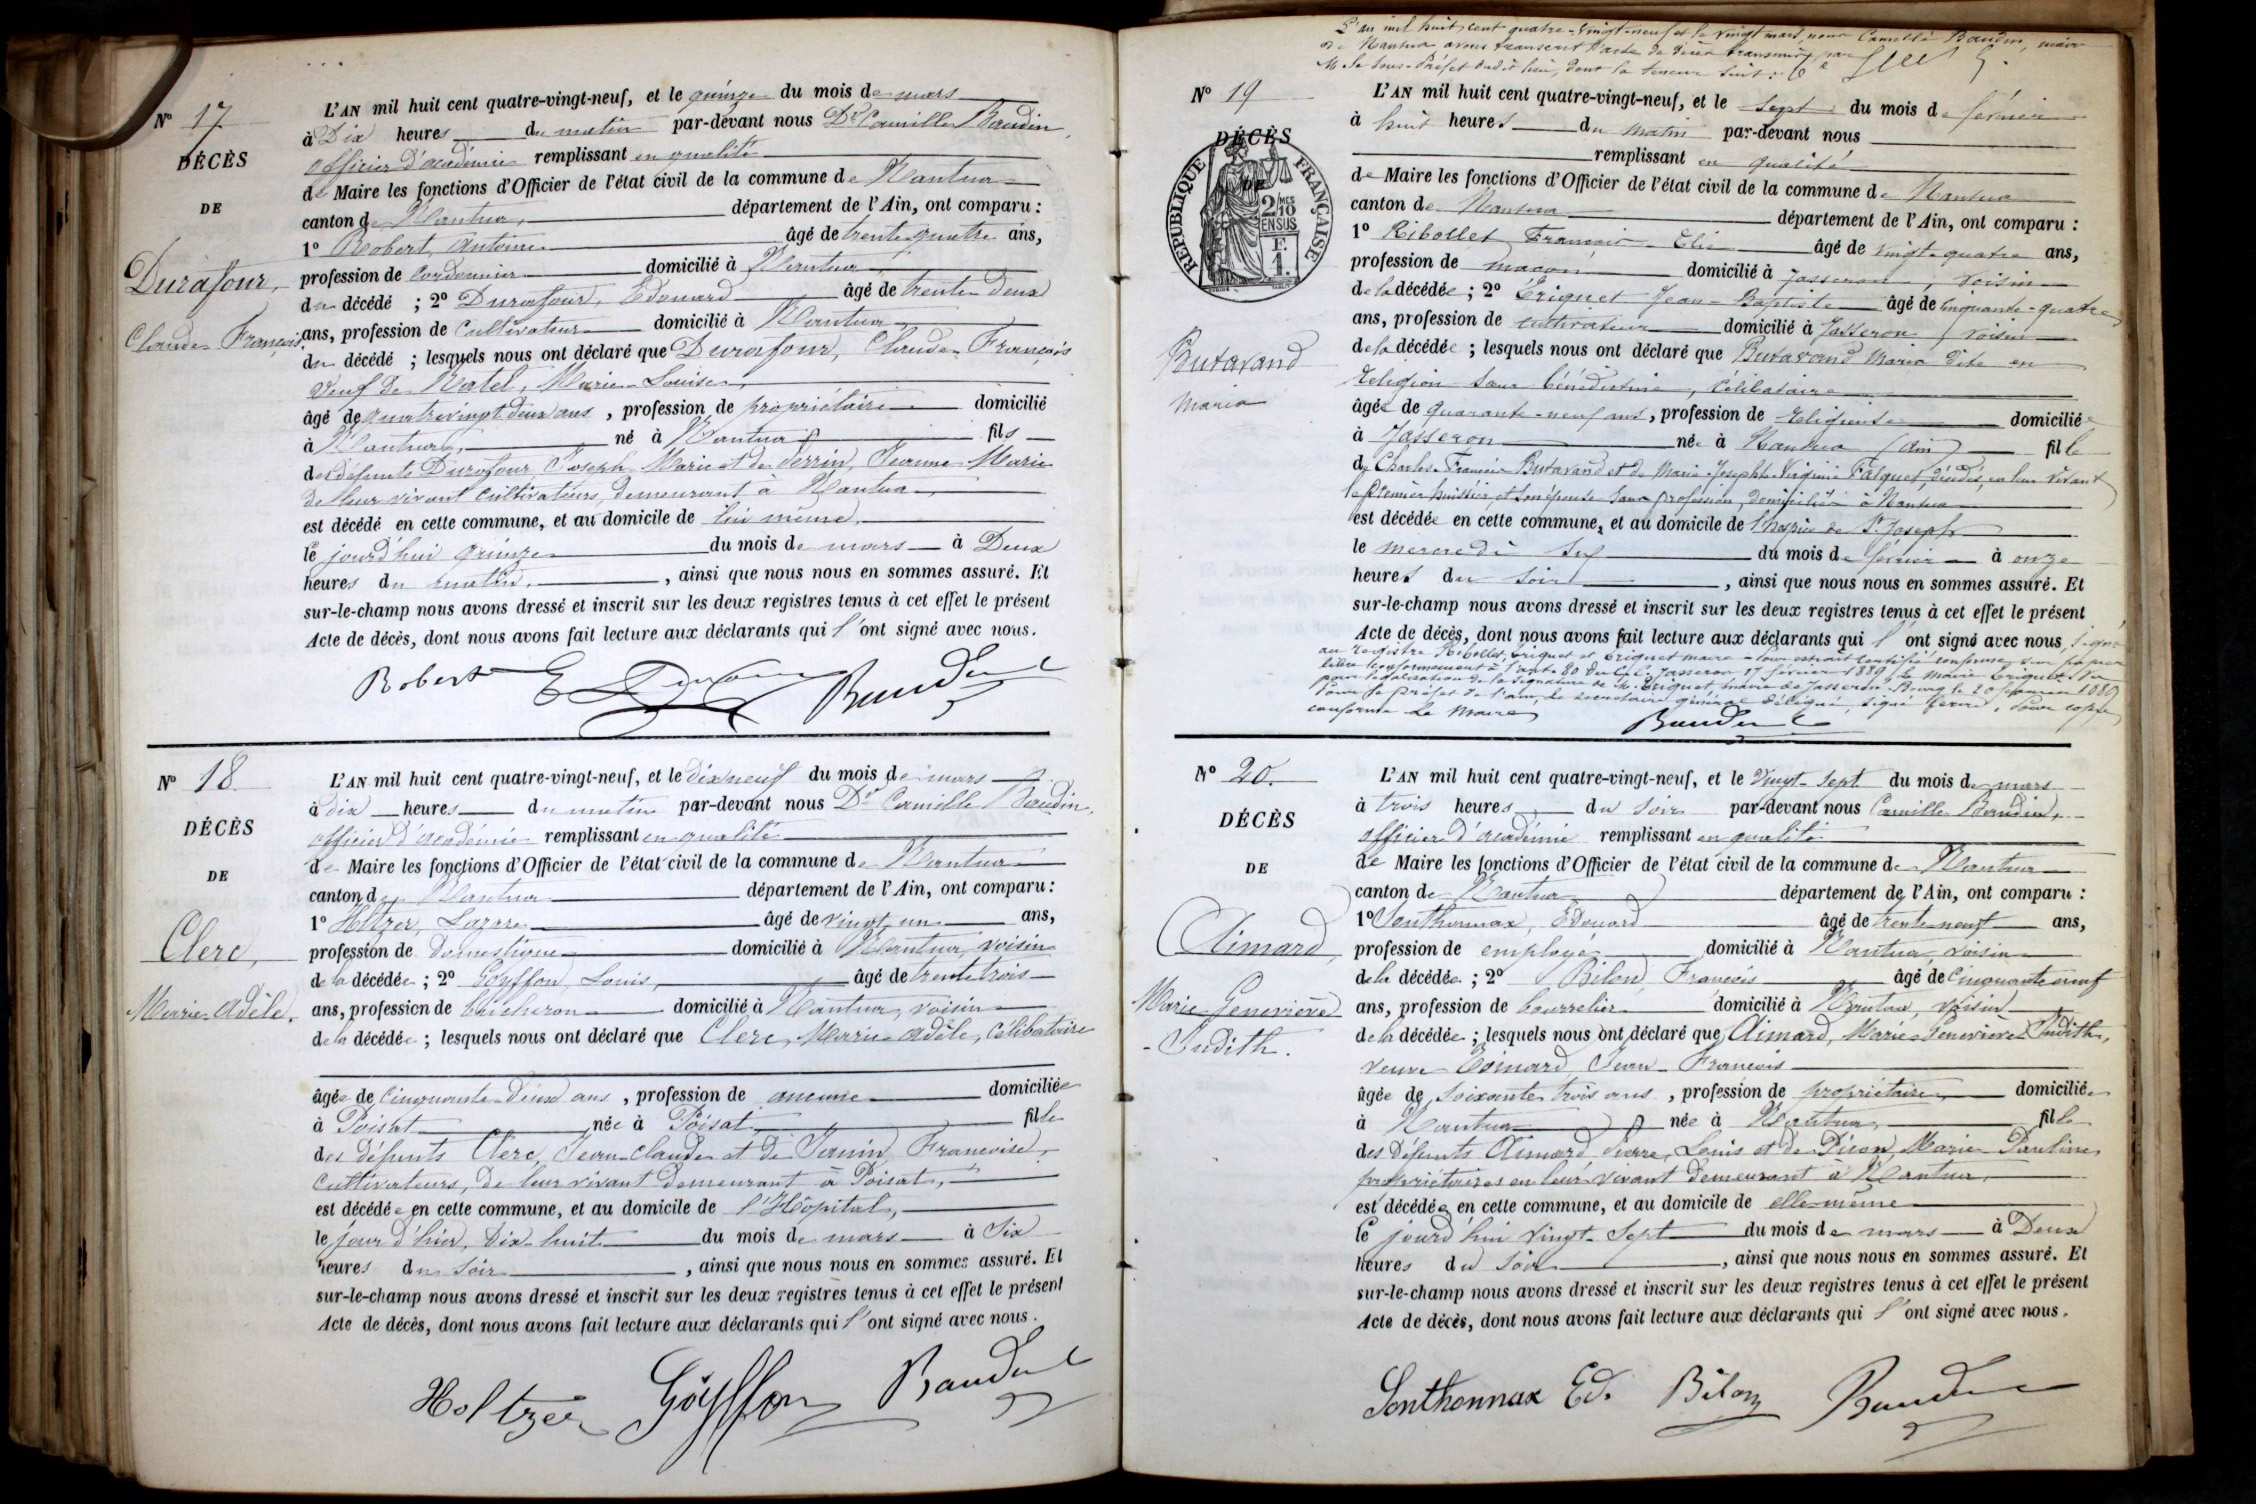 N° 17
DÉCÈS
DE
Durafour,
Claude François.
L'AN mil huit cent quatre-vingt-neuf, et le quinze du mois de mars
à Dix heures du matin par-devant nous Dr Camille Baudin,
officier d'académie remplissant en qualité
de Maire les fonctions d'Officier de l'état civil de la commune de Nantua
canton de Nantua, département de l'Ain, ont comparu :
1° Robert, Antoine âgé de trente quatre ans,
profession de cordonnier domicilié à Nantua
du décédé ; 2° Durafour, Edouard âgé de trente deux
ans, profession de cultivateur domicilié à Nantua
du décédé ; lesquels nous ont déclaré que Durafour, Claude François
veuf de Matel, Marie Louise,
âgé de quatre vingt deux ans, profession de propriétaire domicilié
à Nantua, né à Nantua fils
de défunts Durafour Joseph Marie et de Perrin, Jeanne Marie
de leur vivant cultivateurs, demeurant à Nantua
est décédé en cette commune, et au domicile de lui même,
le jourd'hui quinze du mois de mars à Deux
heures du matin, ainsi que nous nous en sommes assuré. Et
sur-le-champ nous avons dressé et inscrit sur les deux registres tenus à cet effet le présent
Acte de décès, dont nous avons fait lecture aux déclarants qui l'ont signé avec nous.
Robert E Durafour Baudin
N° 18
DÉCÈS
DE
Clerc,
Marie Adèle.
L'AN mil huit cent quatre-vingt-neuf, et le dix neuf du mois de mars
à dix heures du matin par-devant nous Dr Camille Baudin,
officier d'académie remplissant en qualité
de Maire les fonctions d'Officier de l'état civil de la commune de Nantua
canton de Nantua département de l'Ain, ont comparu :
1° Holtzer, Lazare âgé de vingt un ans,
profession de domestique domicilié à Nantua, voisin
de la décédée ; 2° Goyffon, Louis, âgé de trente trois
ans, profession de bucheron domicilié à Nantua, voisin
de la décédée ; lesquels nous ont déclaré que Clerc, Marie Adèle, Célibataire
âgée de cinquante deux ans, profession de aucune domiciliée
à Poisat née à Poisat, fille
des défunts Clerc, Jean Claude et de Janin, Françoise,
cultivateurs, de leur vivant demeurant à Poisat,
est décédée en cette commune, et au domicile de l'Hôpital,
le jour d'hier, dix huit du mois de mars à Six
heures du soir, ainsi que nous nous en sommes assuré. Et
sur-le-champ nous avons dressé et inscrit sur les deux registres tenus à cet effet le présent
Acte de décès, dont nous avons fait lecture aux déclarants qui l'ont signé avec nous.
Holtzer Goÿffon Baudin
L'an mil huit cent quatre-vingt-neuf et le vingt mars, nous Camille Baudin, maire
de Nantua avons transcrit l'acte de décès transmis par
M. le Sous-Préfet dudit lieu, dont la teneur suit :
N° 19
DÉCÈS
DE
RÉPUBLIQUE FRANÇAISE
2/10
EN SUS
F.
1.
Butavand
Maria
L'AN mil huit cent quatre-vingt-neuf, et le sept du mois de février
à huit heures du matin par-devant nous
remplissant en qualité
de Maire les fonctions d'Officier de l'état civil de la commune de Nantua
canton de Nantua département de l'Ain, ont comparu :
1° Ribollet François Elie âgé de vingt-quatre ans,
profession de maçon domicilié à Jasseron, voisin
de la décédée ; 2° Eriguet Jean-Baptiste âgé de cinquante-quatre
ans, profession de cultivateur domicilié à Jasseron, voisin
de la décédée ; lesquels nous ont déclaré que Butavand Maria dite en
religion Sœur Bénédictine, célibataire
âgée de quarante-neuf ans, profession de religieuse domiciliée
à Jasseron née à Nantua (Ain) fille
de Charles-François Butavand et de Marie-Josephte-Virginie Fasquet, décédés, en leur vivant
le premier huissier, et son épouse sans profession, domiciliés à Nantua
est décédée en cette commune, et au domicile de l'hospice de St Joseph
le mercredi six du mois de février à onze
heures du soir, ainsi que nous nous en sommes assuré. Et
sur-le-champ nous avons dressé et inscrit sur les deux registres tenus à cet effet le présent
Acte de décès, dont nous avons fait lecture aux déclarants qui l'ont signé avec nous, signé
au registre Ribollet, Eriguet et Eriguet maire pour extrait certifié conforme sur papier
libre conformément à l'article 80 du C. C. Jasseron 17 février 1889, Le Maire Eriguet. Vu
pour légalisation de la signature de M. Eriguet, maire de Jasseron Bourg le 20 1889
Pour le préfet de l'Ain, le secrétaire général délégué, signé . Pour copie
conforme Le Maire
Baudin
N° 20.
DÉCÈS
DE
Aimard,
Marie Geneviève
-Judith.
L'AN mil huit cent quatre-vingt-neuf, et le vingt-sept du mois de mars
à trois heures du soir par-devant nous Camille Baudin,
officier d'académie remplissant en qualité
de Maire les fonctions d'Officier de l'état civil de la commune de Nantua
canton de Nantua département de l'Ain, ont comparu :
1° Sonthonnax, Edouard âgé de trente neuf ans,
profession de employé domicilié à Nantua, voisin
de la décédée ; 2° Bilon, François âgé de cinquante neuf
ans, profession de bourrelier domicilié à Nantua, voisin
de la décédée ; lesquels nous ont déclaré que Aimard, Marie Geneviève Judith,
veuve Coinard, Jean-François
âgée de soixante trois ans, profession de propriétaire domiciliée
à Nantua née à Nantua, fille
des défunts Aimard Pierre, Louis et de Picon, Marie Pauline,
propriétaires en leur vivant demeurant à Nantua,
est décédée en cette commune, et au domicile de elle-même
le jourd'hui vingt-sept du mois de mars à Deux
heures du soir, ainsi que nous nous en sommes assuré. Et
sur-le-champ nous avons dressé et inscrit sur les deux registres tenus à cet effet le présent
Acte de décès, dont nous avons fait lecture aux déclarants qui l'ont signé avec nous.
Sonthonnax Ed. Bilon Baudin